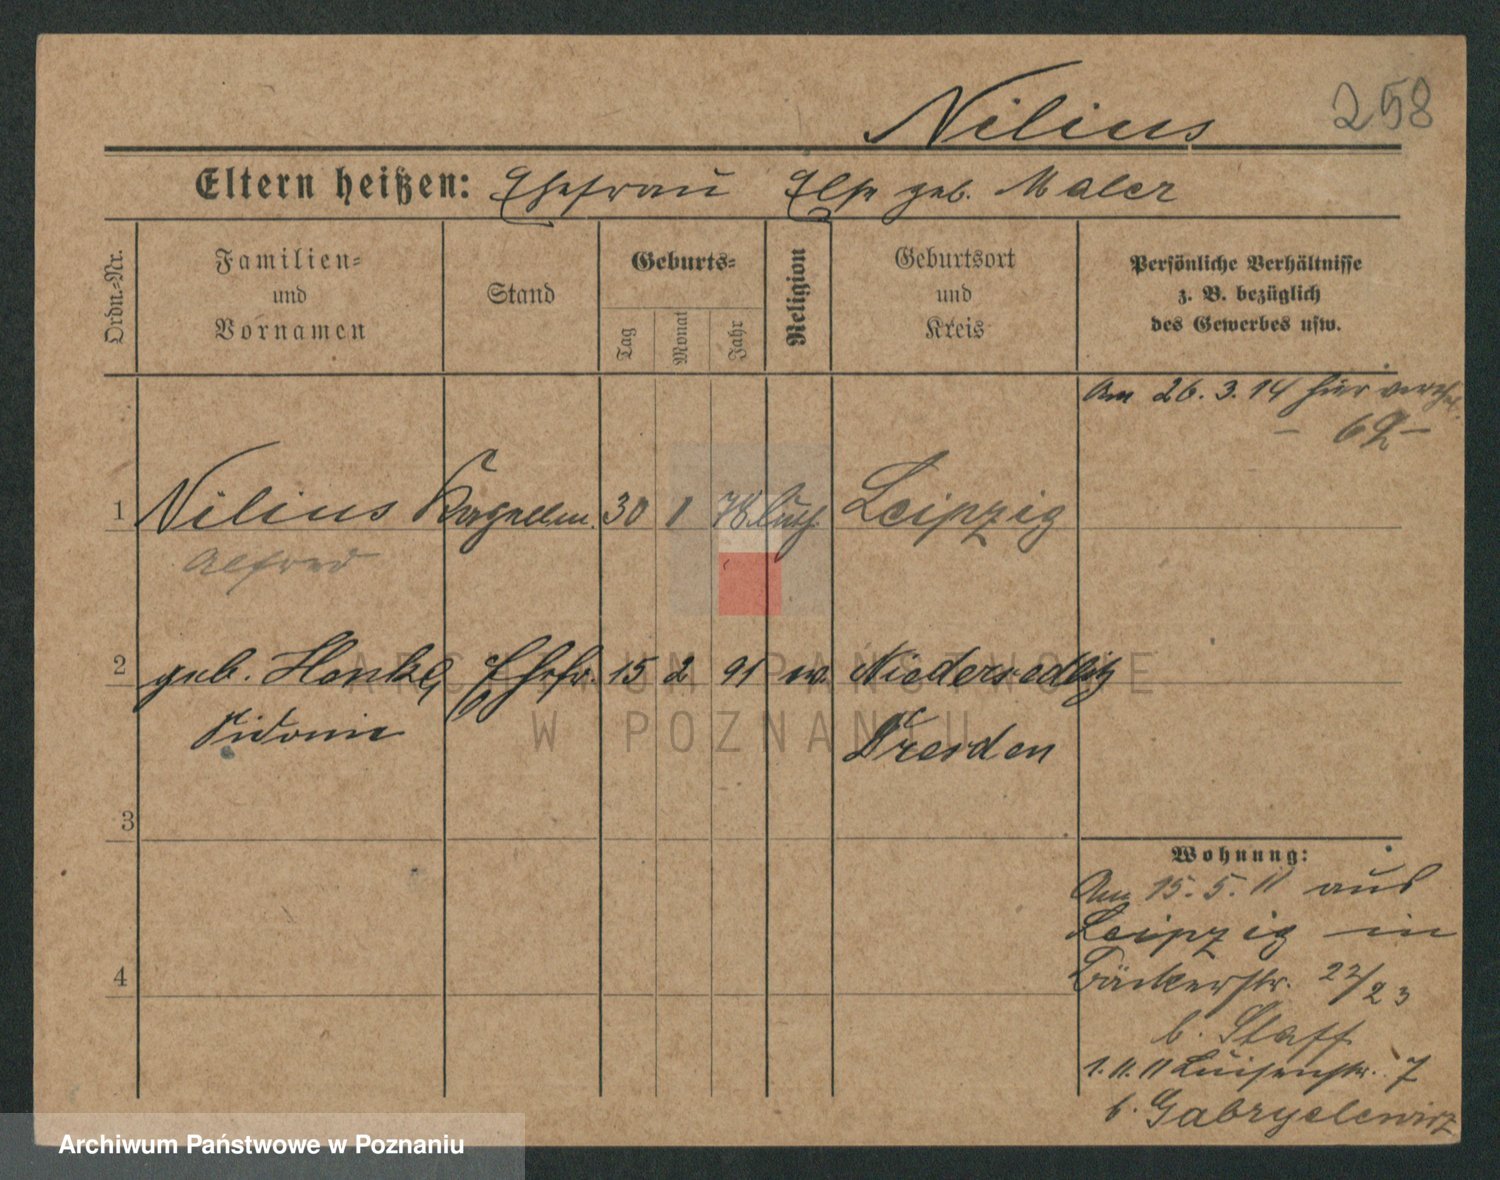 Nilius 258
Eltern heißen: Ehefrau Else geb. Maler
Ordn.-Nr.
Familien-
und
Vornamen
Stand
Geburts-
Tag
Monat
Jahr
Religion
Geburtsort
und
Kreis
Persönliche Verhältnisse
z. B. bezüglich
des Gewerbes usw.
Am 26.3.14 hier
1 Nilius Kapellm. 30 1 78 luth. Leipzig
Alfred
2 geb. Henkel Ehefr. 15 2 91 w. Niedersedlitz
Sidonie Dresden
3
4
Wohnung:
Am 15.5.11 aus
Leipzig in
Bäckerstr. 22/23
b. Staff
1.11.11 Luisenstr. 7
b. Gabryelewicz
ARCHIWUM PAŃSTWOWE
W POZNANIU
Archiwum Państwowe w Poznaniu